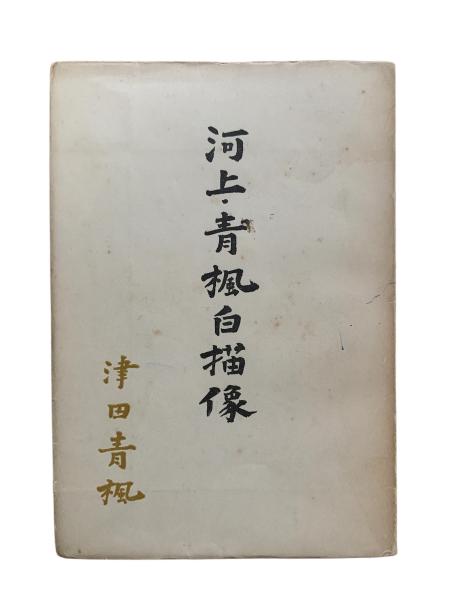 河上・青楓白描像
津田青楓